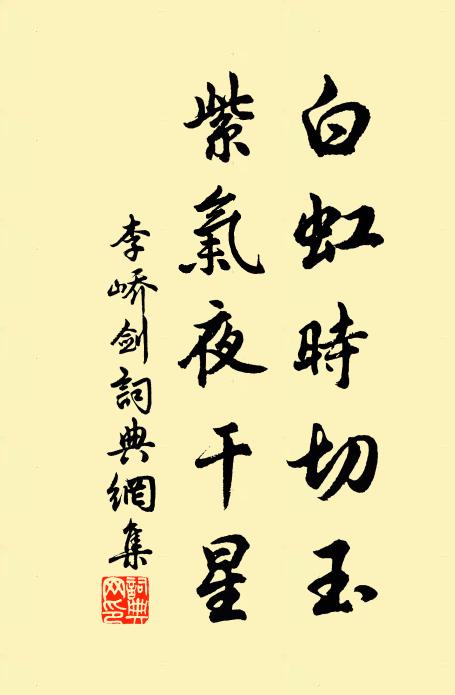 白虹時切玉
紫氣夜干星
李嶠劍詞典網集
詞典网印